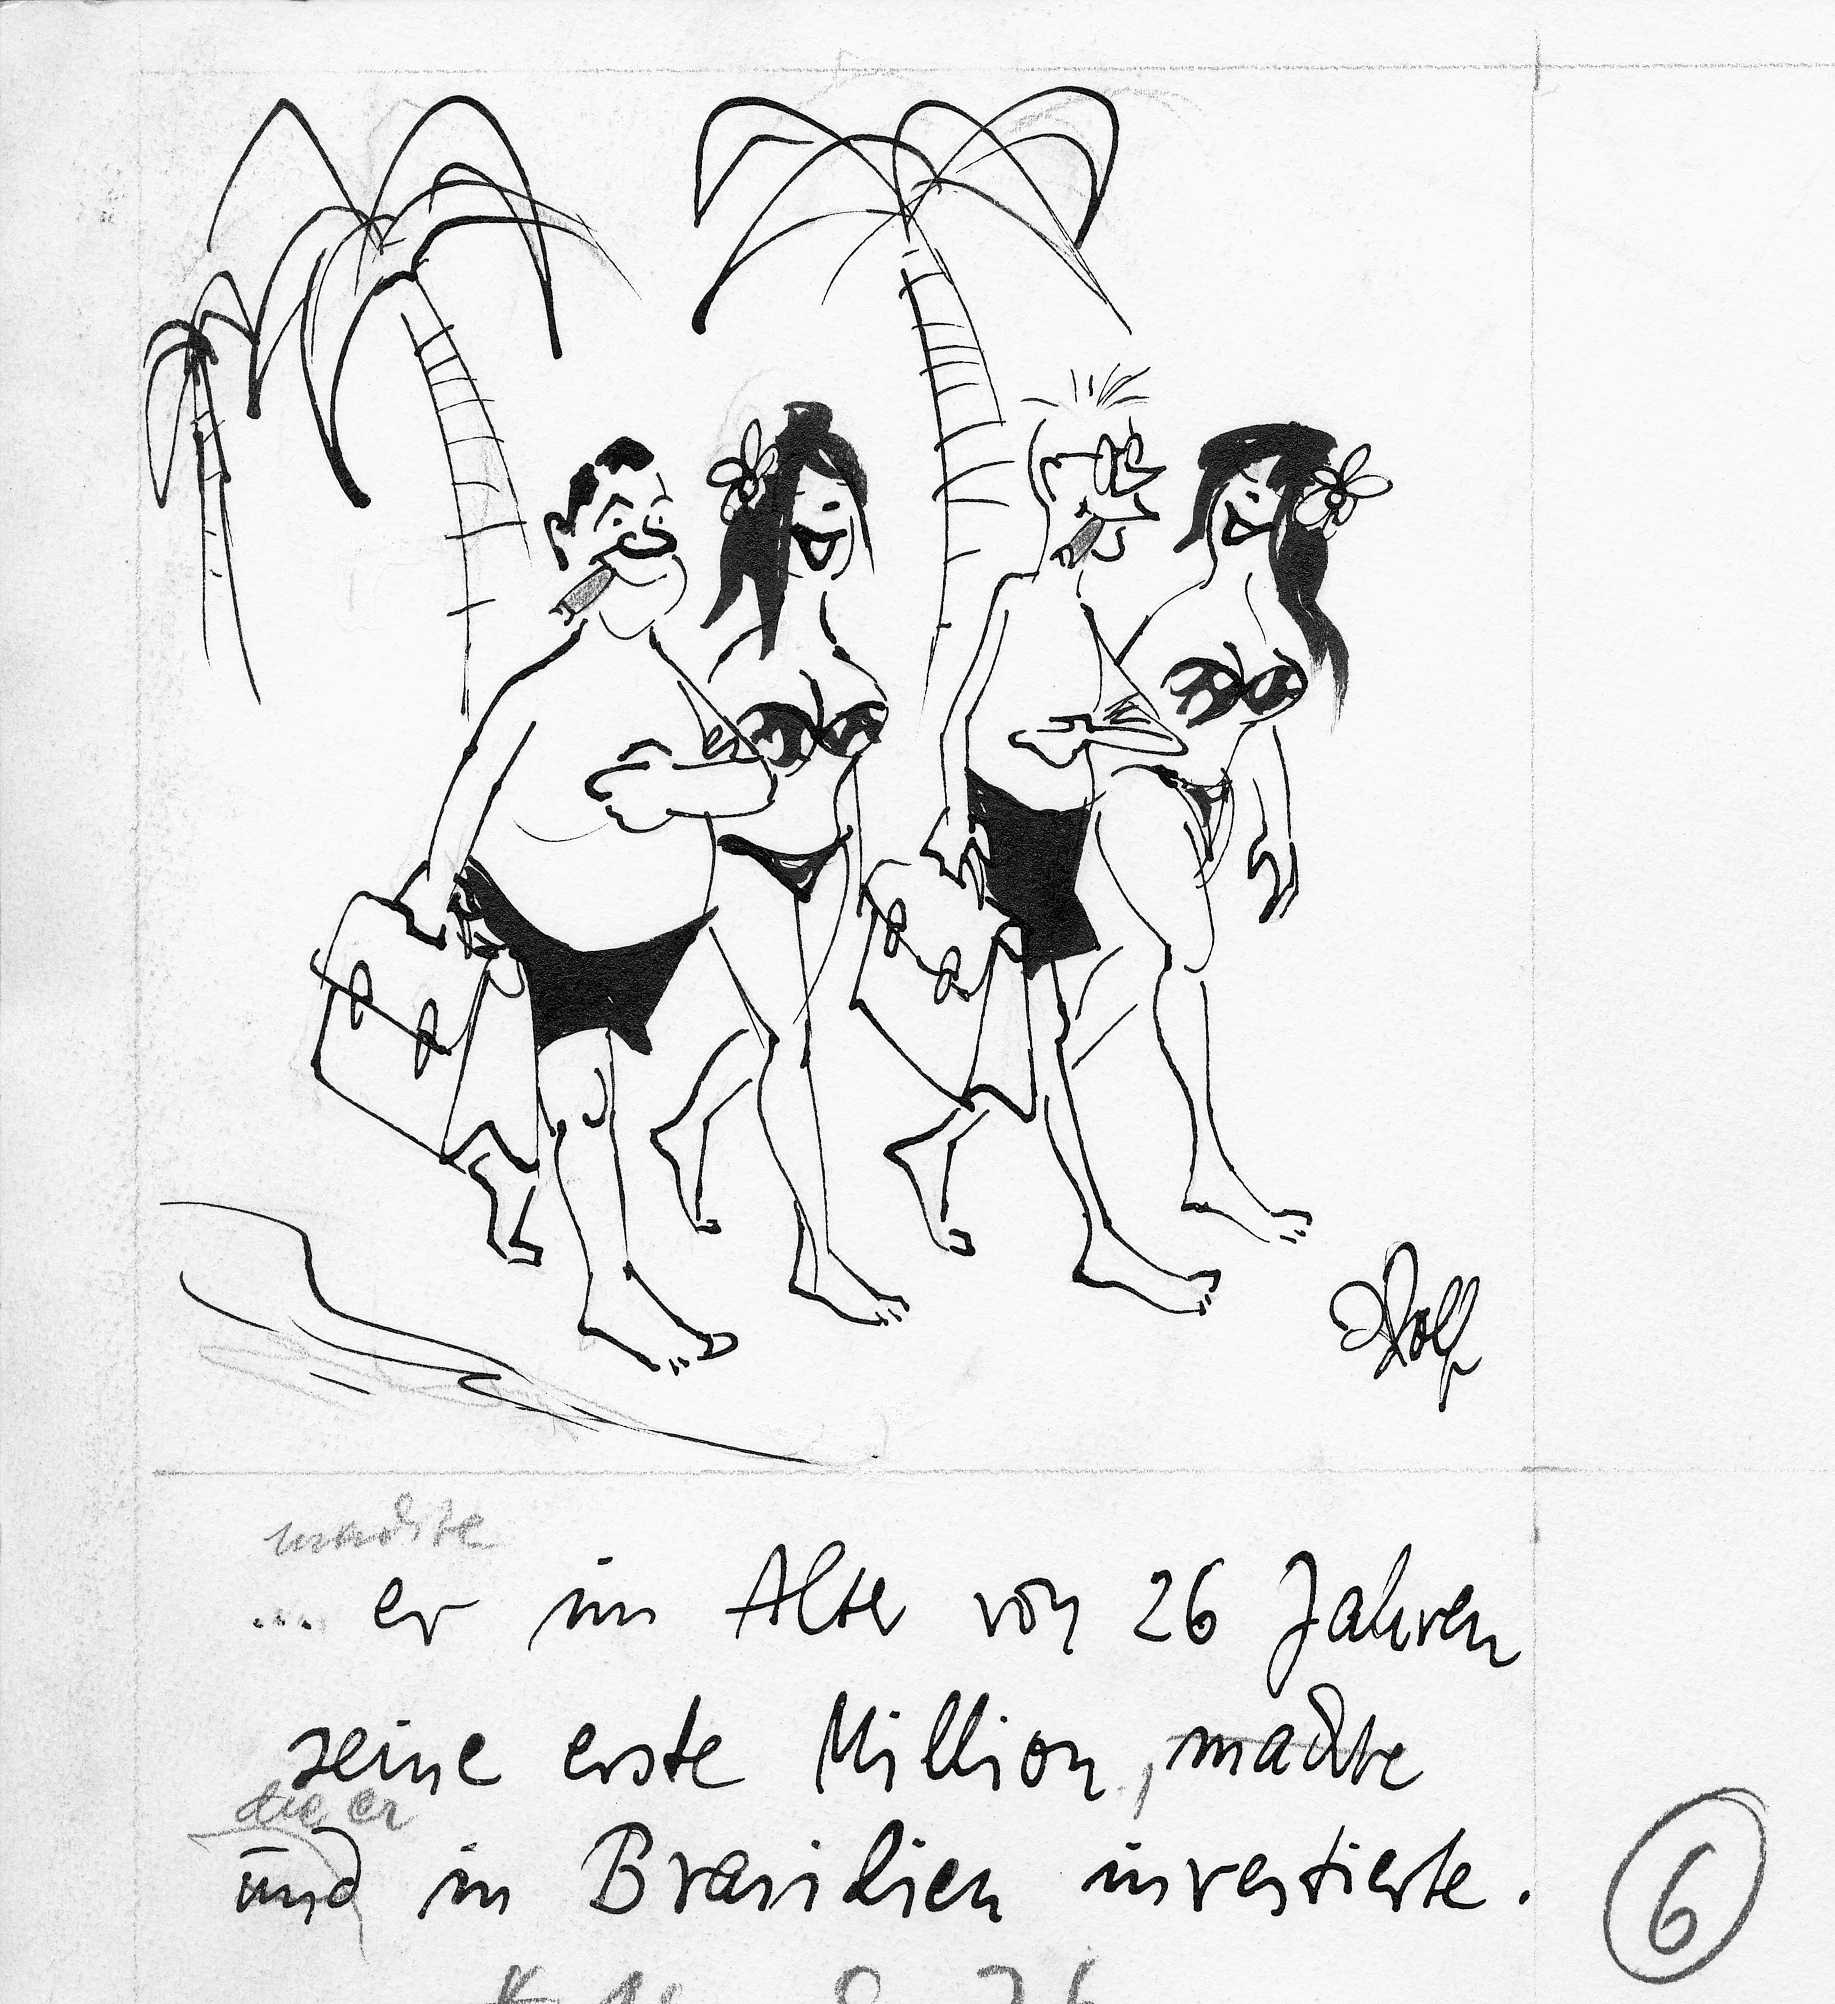 Wolf
machte
... er im Alter von 26 Jahren
seine erste Million, machte
die er
und in Brasilien investierte.
6